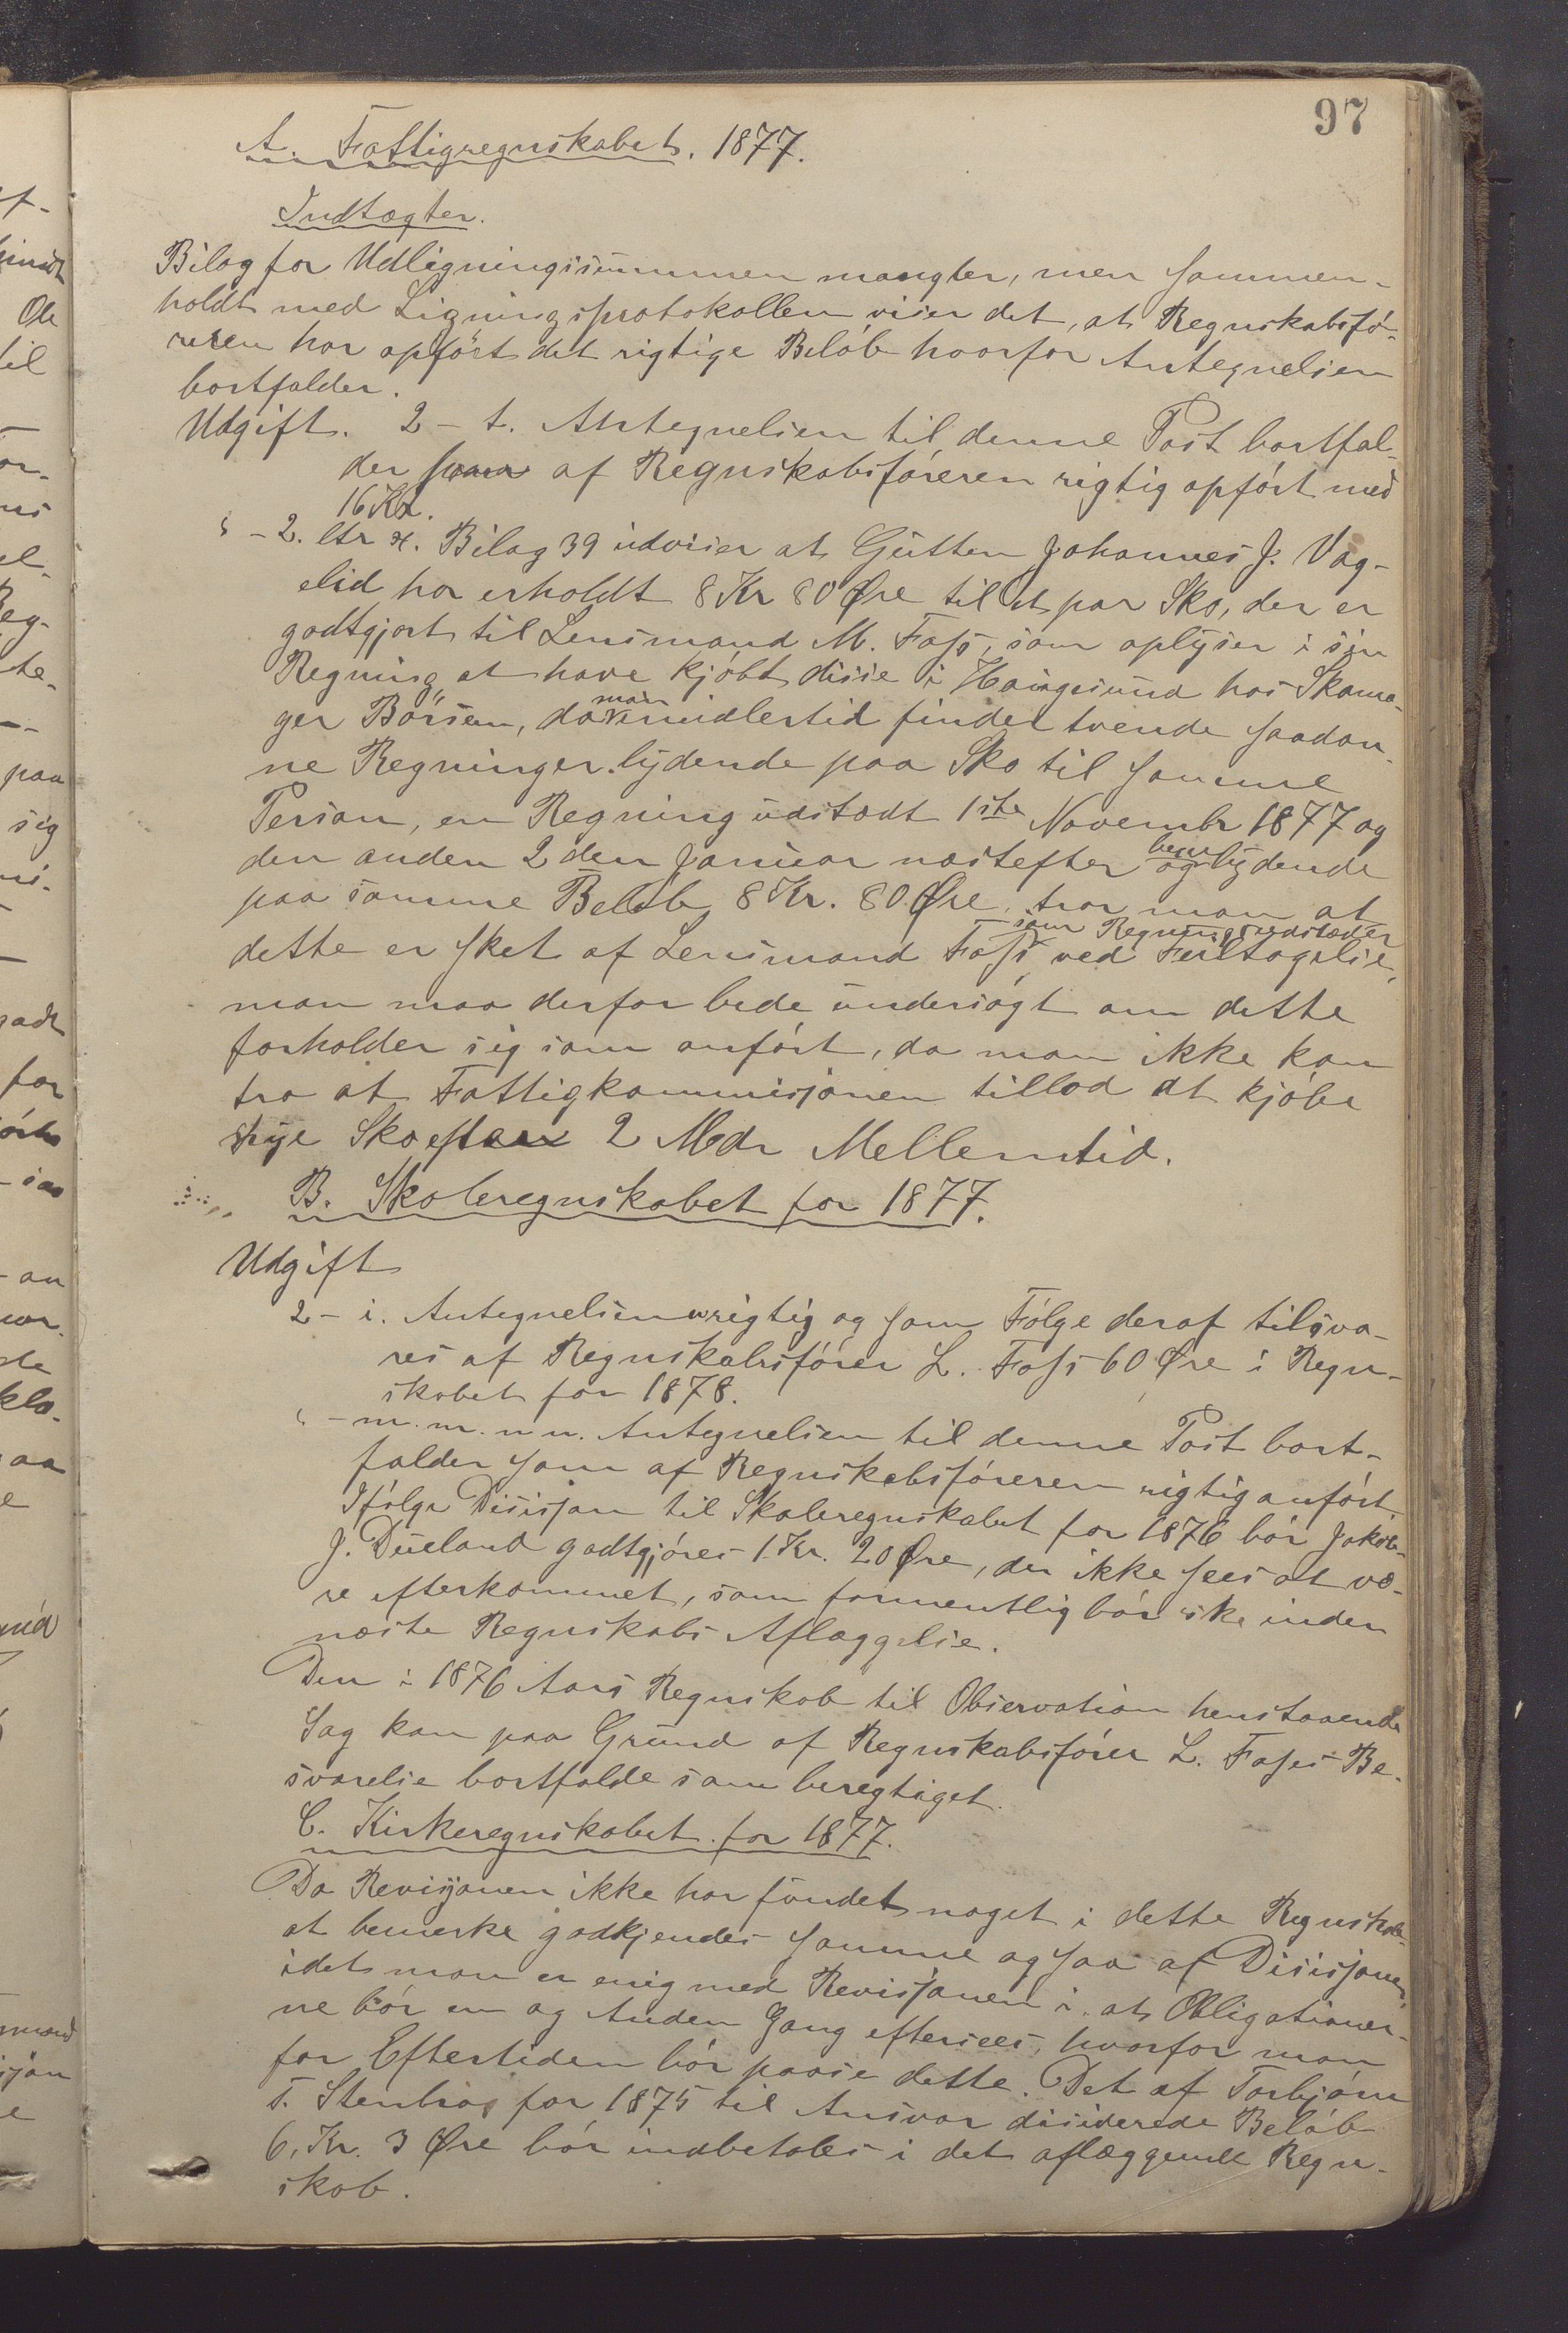 97
A. Fattigregnskabet. 1877.
Indtægter.
Bilag for Udligningssummen mangler, men sammen-
holdt med Ligningsprotokollen viser det, at Regnskabsfø-
reren har opført det rigtige Beløb hvorfor Antegnelsen
bortfalder.
Udgift. 2 - t. Antegnelsen til denne Post bortfal-
der som af Regnskabsføreren rigtig opført med
16 Kr.
" - 2. ltr æ. Bilag 39 udviser at Gutten Johannes J. Vag-
elid har erholdt 8 Kr 80 Øre til et par Sko, der er
godtgjort til Lensmand M. Foss, som oplyser i sin
Regning at have kjøbt disse i Haugesund hos Skoma-
ger Børsem, da man imidlertid finder tvende saadan
ne Regninger lydende paa Sko til samme
Person, en Regning udstædt 1ste Novembr 1877 og
den anden 2den Januar næstefter begge lydende
paa samme Beløb 8 Kr. 80 Øre, tror man at
som Regningsudstæder
dette er sket af Lensmand Foss ved Feiltagelse,
man maa derfor bede undersøgt om dette
forholder sig som anført, da man ikke kan
tro at Fattigkommisjonen tillod at kjøbe
nye Sko efter 2 Mdr Mellemtid.
B. Skoleregnskabet for 1877.
Udgift
2 - i. Antegnelsen rigtig og som Følge deraf tilsva-
res af Regnskabsfører L. Foss 60 Øre i Regn-
skabet for 1878.
" - m. m. n n. Antegnelsen til denne Post bort-
falder som af Regnskabsføreren rigtig anført
Ifølge Disisjon til Skoleregnskabet for 1876 bør Jakob
J. Dueland godtgjøres 1 Kr. 20 Øre, der ikke sees at væ-
re efterkommet, som formentlig bør ske inden
næste Regnskabs Aflæggelse.
Den i 1876 Aars Regnskab til Observation henstaaende
Sag kan paa Grund af Regnskabsfører L. Foss's Be-
svarelse bortfalde som beregtiget.
C. Kirkeregnskabet for 1877.
Da Revisjonen ikke har fundet noget i dette Regnskab
at bemerke godkjendes samme og saa af Disisjonen,
idet man er enig med Revisjonen i at Obligationer-
ne bør en og Anden Gang eftersees, hvorfor man
for Eftertiden bør paase dette. Det af Torbjørn
T. Stenbro for 1875 til Ansvar disiderede Beløb
6. Kr. 3 Øre bør indbetales i det aflæggende Regn-
skab.